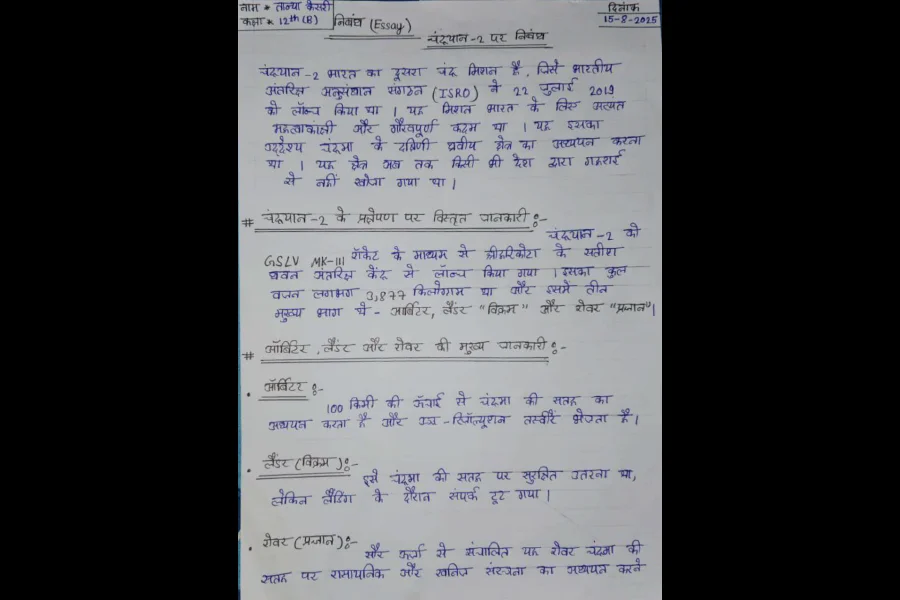 नाम * तान्या केसरी
कक्षा * 12th (B)
दिनांक
15-8-2025
निबंध (Essay)
चंद्रयान-2 पर निबंध
चंद्रयान-2 भारत का दूसरा चंद्र मिशन है, जिसे भारतीय
अंतरिक्ष अनुसंधान संगठन (ISRO) ने 22 जुलाई 2019
को लॉन्च किया था । यह मिशन भारत के लिए अत्यंत
महत्वाकांक्षी और गौरवपूर्ण कदम था । यह इसका
उद्देश्य चंद्रमा के दक्षिणी ध्रुवीय क्षेत्र का अध्ययन करना
था । यह क्षेत्र अब तक किसी भी देश द्वारा गहराई
से नहीं खोजा गया था ।
# चंद्रयान-2 के प्रक्षेपण पर विस्तृत जानकारी :-
चंद्रयान-2 को
GSLV MK-III रॉकेट के माध्यम से श्रीहरिकोटा के सतीश
धवन अंतरिक्ष केंद्र से लॉन्च किया गया । इसका कुल
वजन लगभग 3,877 किलोग्राम था और इसमें तीन
मुख्य भाग थे - ऑर्बिटर, लैंडर "विक्रम" और रोवर "प्रज्ञान" ।
# ऑर्बिटर, लैंडर और रोवर की मुख्य जानकारी :-
• ऑर्बिटर :-
100 किमी की ऊँचाई से चंद्रमा की सतह का
अध्ययन करता है और उच्च-रिज़ॉल्यूशन तस्वीरें भेजता है ।
• लैंडर (विक्रम) :-
इसे चंद्रमा की सतह पर सुरक्षित उतरना था,
लेकिन लैंडिंग के दौरान संपर्क टूट गया ।
• रोवर (प्रज्ञान) :-
सौर ऊर्जा से संचालित यह रोवर चंद्रमा की
सतह पर रासायनिक और खनिज संरचना का अध्ययन करने